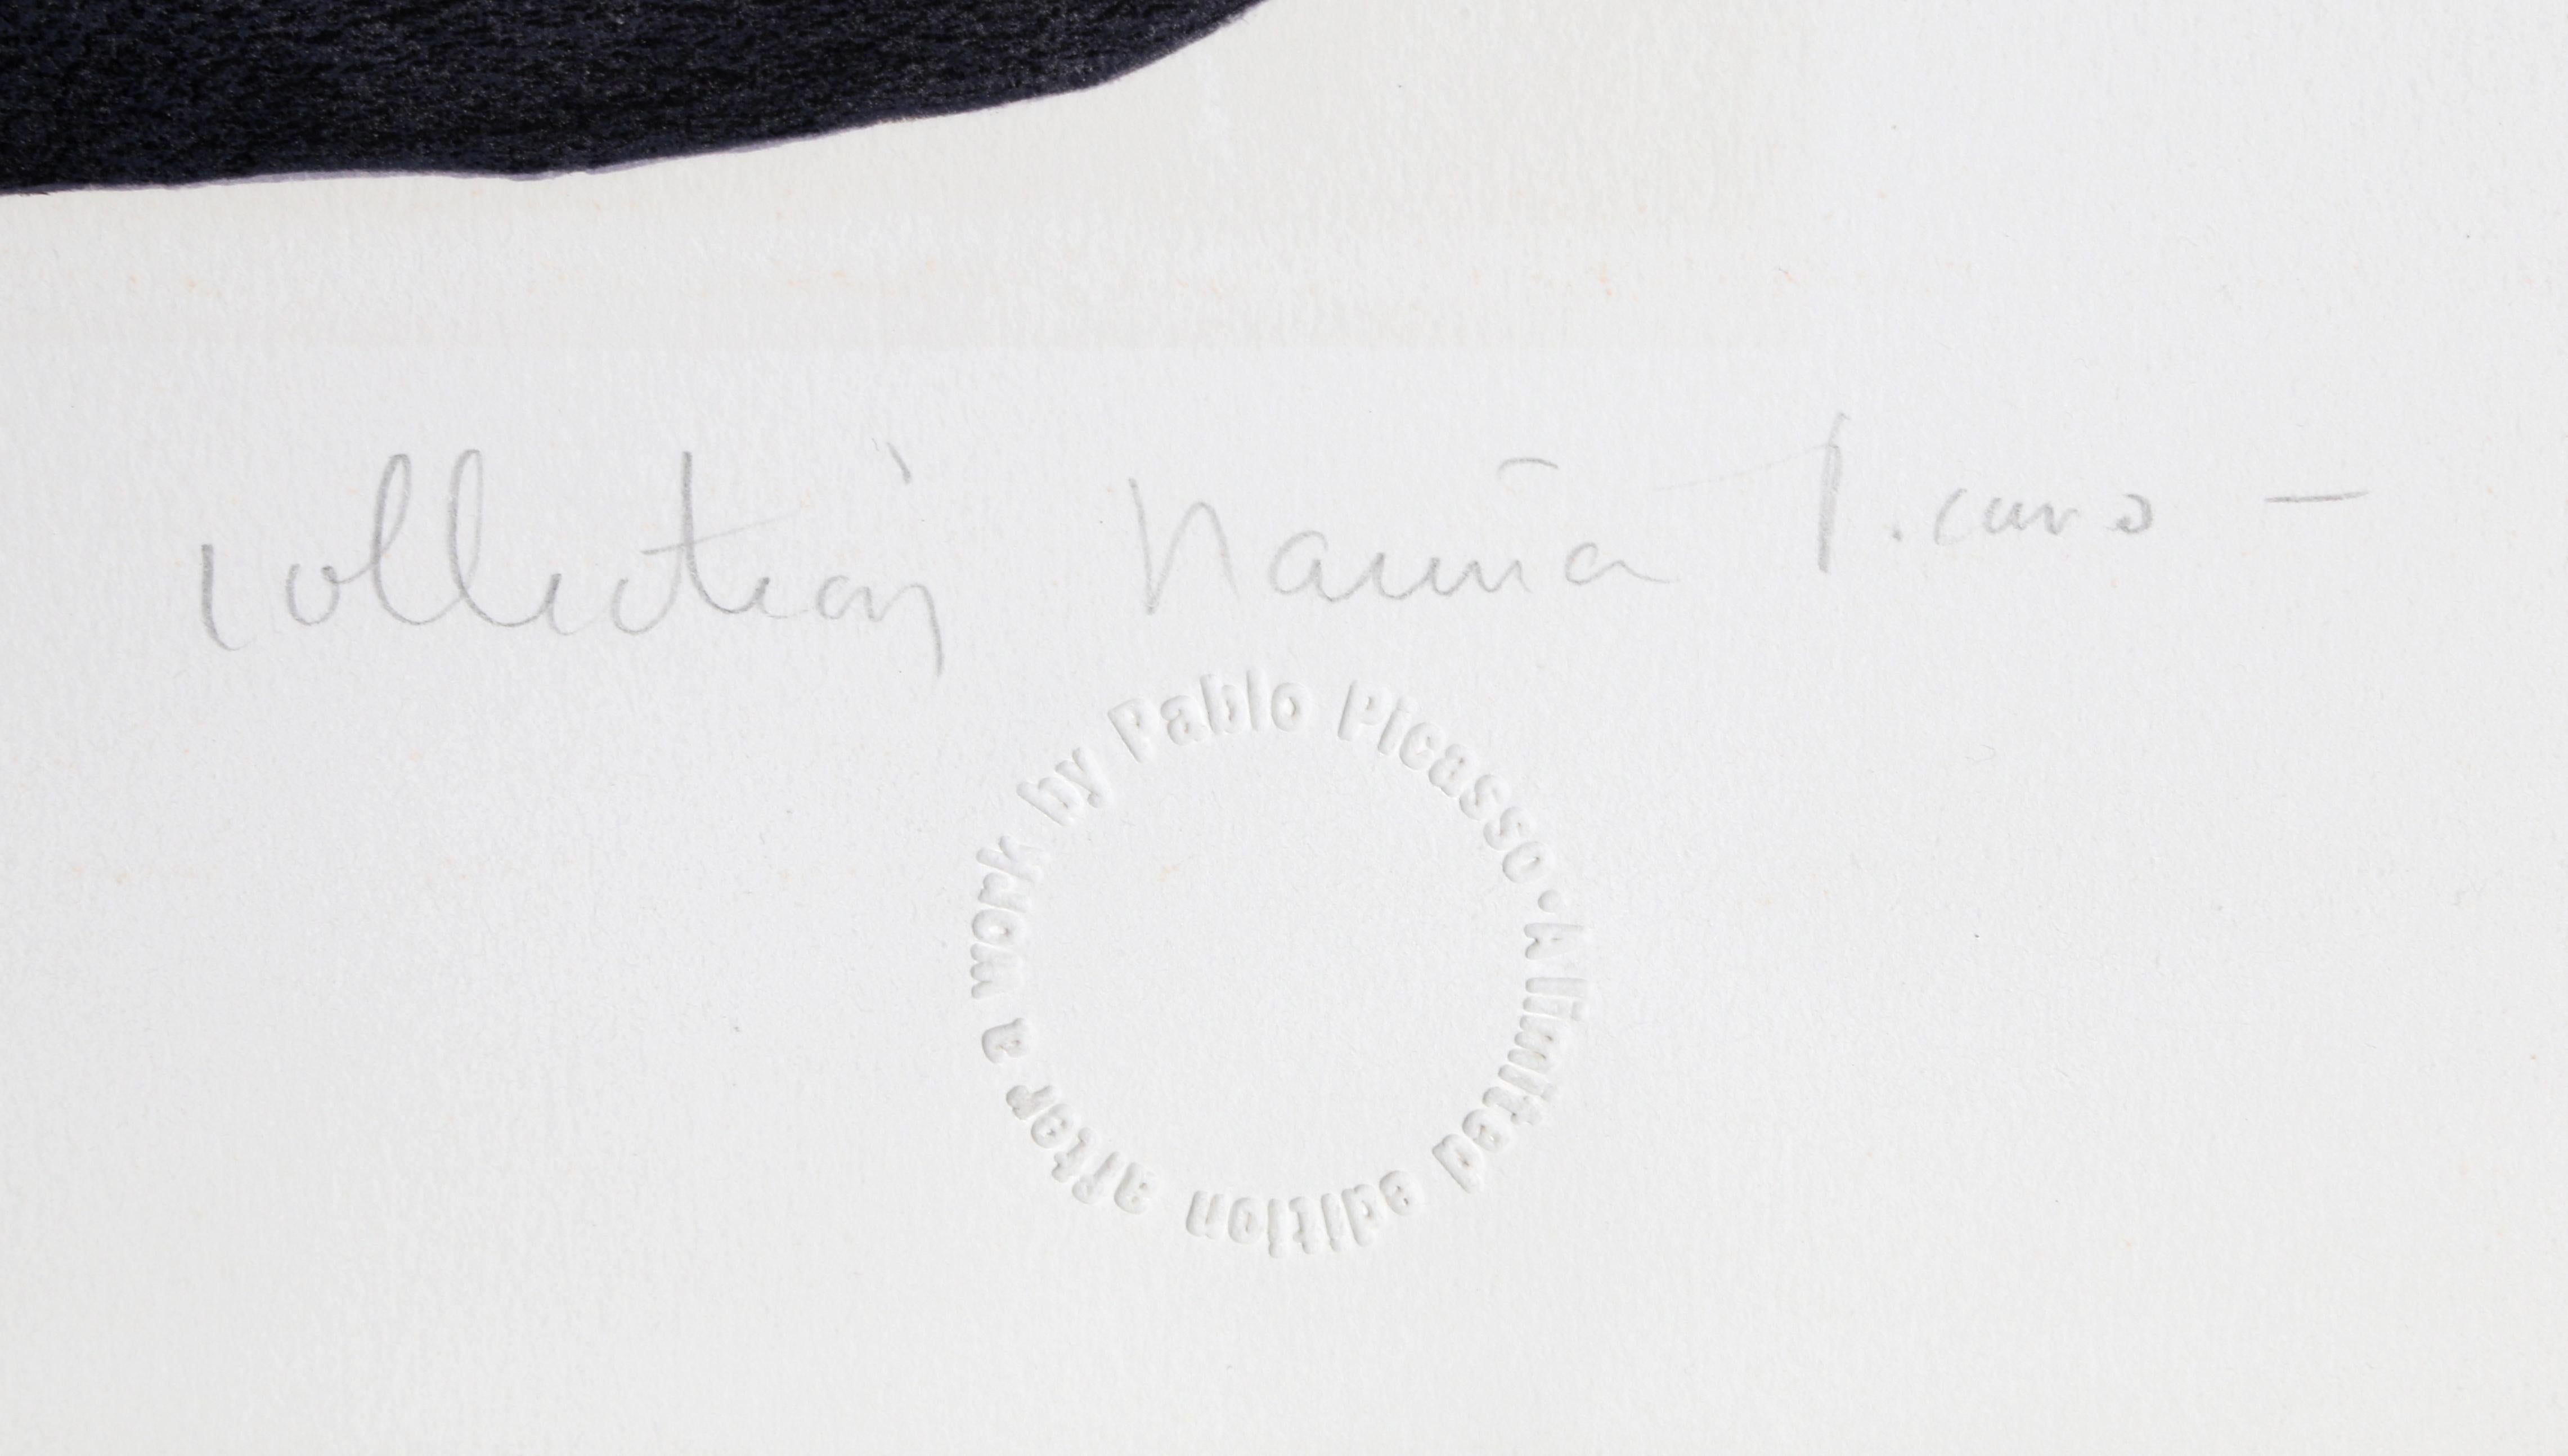 Collection Marina Picasso –
A limited edition after a work by Pablo Picasso •